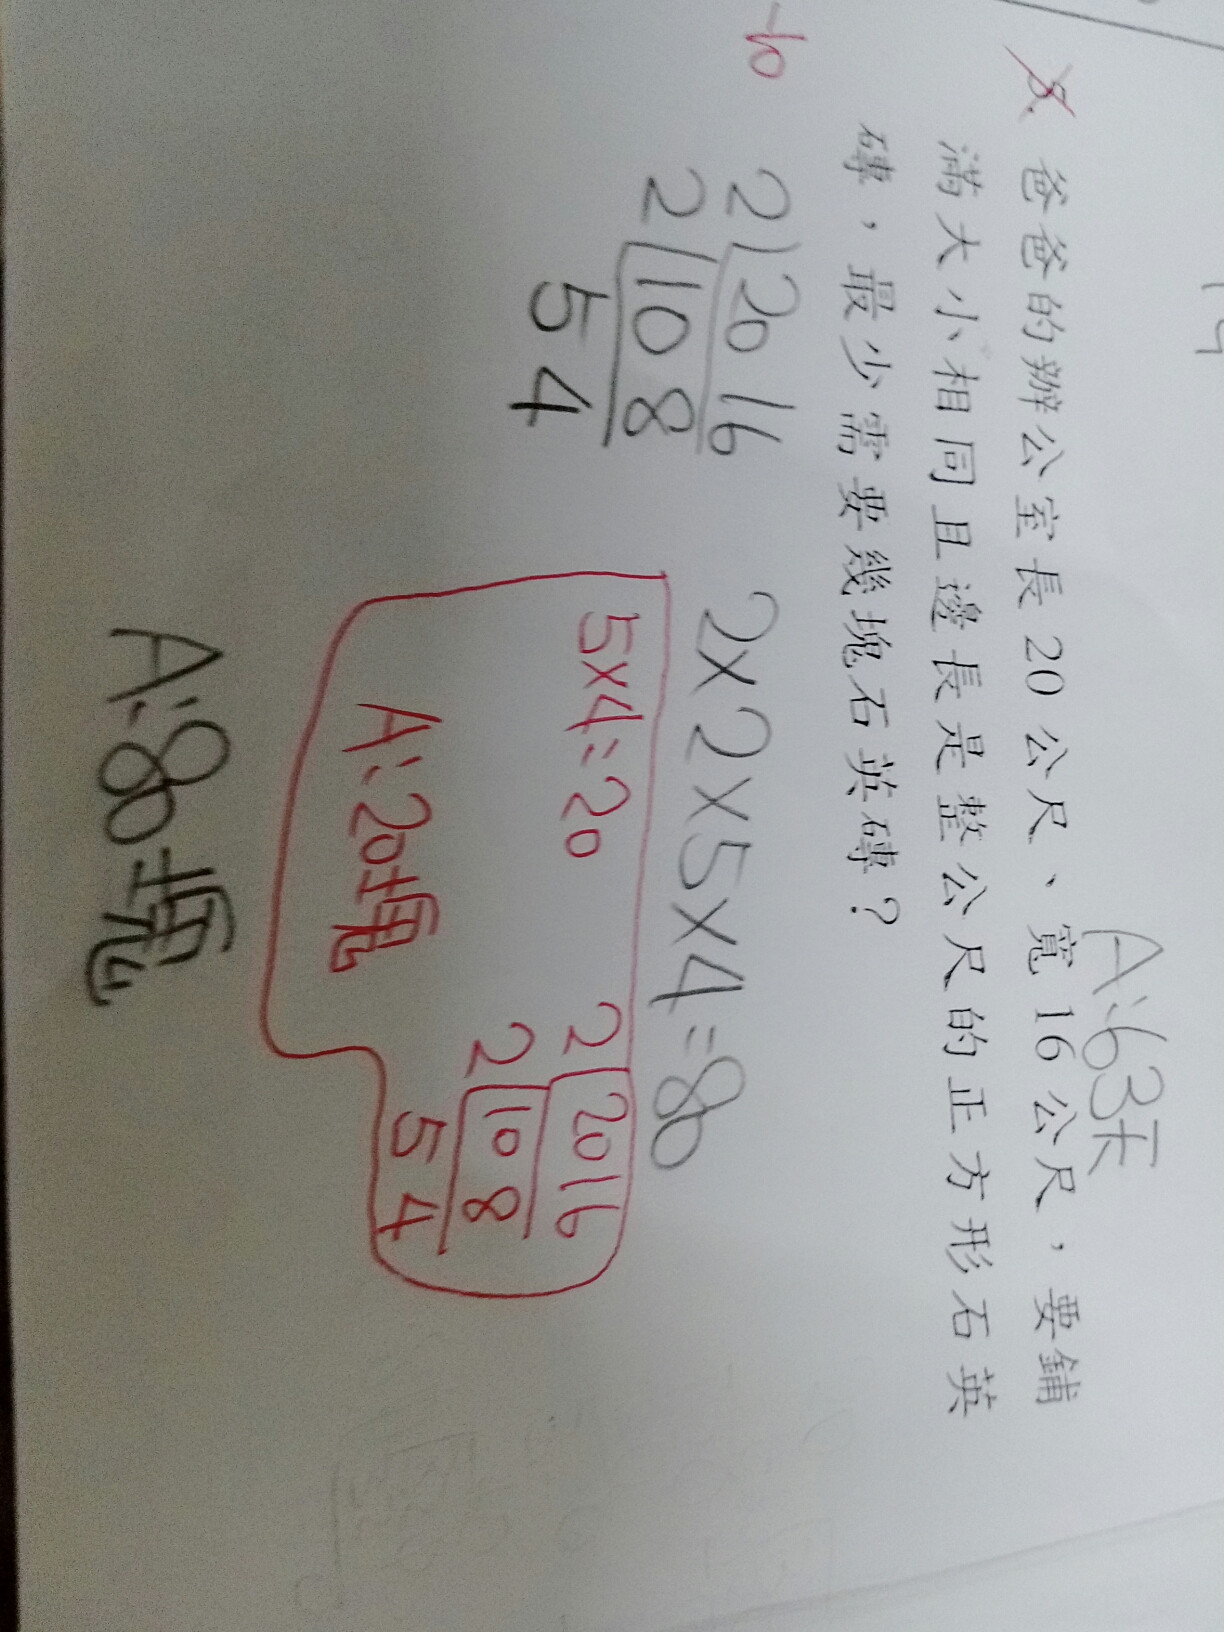 A:63天
8. 爸爸的辦公室長20公尺、寬16公尺，要鋪
滿大小相同且邊長是整公尺的正方形石英
磚，最少需要幾塊石英磚？
-10
2 20 16
2 10 8
5 4
2×2×5×4=80
5×4=20
A:20塊
2 20 16
2 10 8
5 4
A:80塊